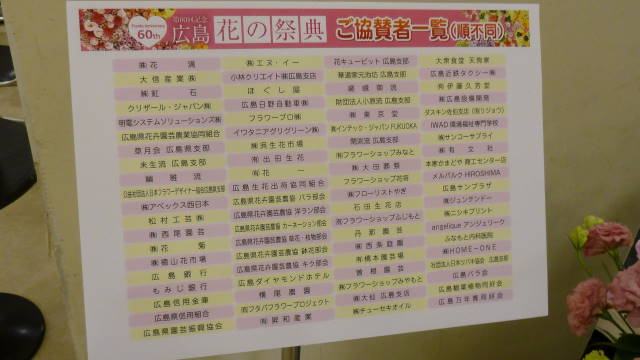 60th
第60回記念
広島 花の祭典 ご協賛者一覧(順不同)
大信産業㈱
㈱虹石
クリザール・ジャパン㈱
明電システムソリューションズ㈱
広島県花卉園芸農業協同組合
草月会 広島県支部
未生流 広島支部
㈱アベックス西日本
松村工芸㈱
㈱西尾園芸
㈱花菊
広島銀行
もみじ銀行
広島信用金庫
広島県信用組合
広島県園芸振興協会
㈱エヌ・イー
小林クリエイト㈱広島支店
ほぐし屋
広島日野自動車㈱
フラワープロ㈱
イワタニアグリグリーン㈱
㈱浜生花市場
㈲出田生花
㈲花一
広島生花出荷協同組合
広島県花卉園芸農協 バラ部会
広島県花卉園芸農協 洋ラン部会
広島県花卉園芸農協 カーネーション部会
広島県花卉園芸農協 草花・枝物部会
広島県花卉園芸農協 鉢花部会
広島県花卉園芸農協 キク部会
広島ダイヤモンドホテル
横尾農園
㈲フタバフラワープロジェクト
㈲昇和産業
花キューピット 広島支部
華道家元池坊 広島支部
嵯峨御流
財団法人小原流 広島支部
㈱東京堂
㈱インテック・ジャパン FUKUOKA
関西流 広島支部
㈲フラワーショップみなと
㈱大田葬祭
フラワーショップ花将
㈱フローリストやぎ
石田生花店
㈲フラワーショップふじもと
丹那園
㈱西条庭園
㈲橋本園芸場
曽根園芸
㈱フラワーショップみやもと
㈱大仙 広島支店
㈱チューセキオイル
大衆食堂 天狗家
広島近鉄タクシー㈱
㈲伊藤久芳堂
㈱広島設備開発
ダスキン佐伯支店 (㈲リジョウ)
IWAD 環境福祉専門学校
㈱サンコーサプライ
㈲有文社
本家かまどや 商工センター店
メルパルク HIROSHIMA
広島サンプラザ
㈱ジュンテンドー
㈱ニシキプリント
angelique アンジェリーク
ふなもと内科医院
㈱HOME-ONE
社団法人日本ツバキ協会 広島支部
広島バラ会
広島観葉植物同好会
広島万年青同好会